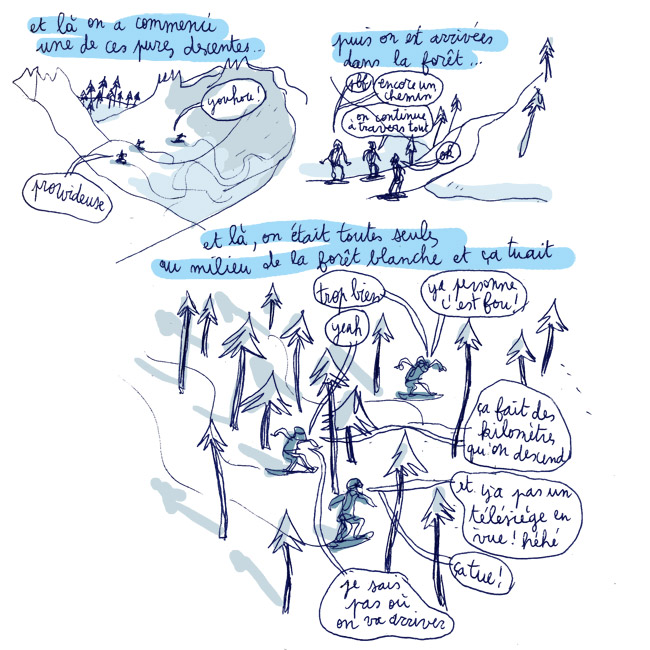 et là on a commencé
une de ces pures descentes...
youhou!
provideuse
puis on est arrivées
dans la forêt...
encore un
chemin
on continue
à travers tout
ok
et là, on était toutes seules
au milieu de la forêt blanche et ça tuait
trop bien
yeah
ya personne
c'est fou!
ça fait des
kilomètres
qu'on descend
et y'a pas un
télésiège en
vue! héhé
ça tue!
je sais
pas où
on va arriver